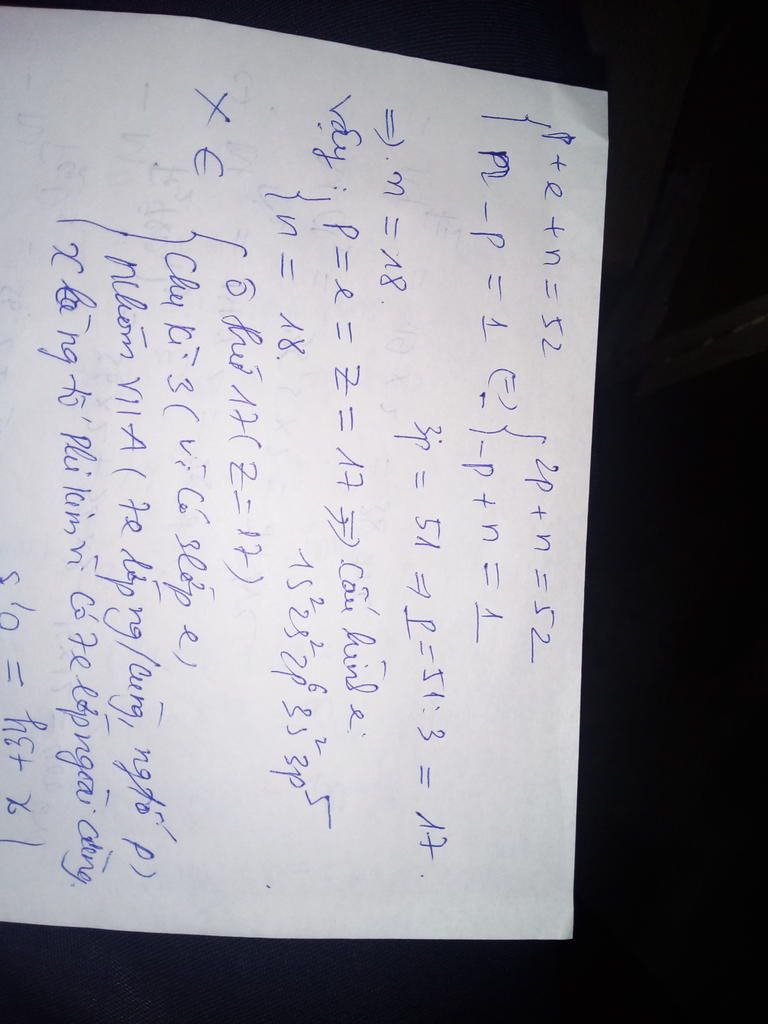 { p + e + n = 52
n - p = 1 <=> { 2p + n = 52
-p + n = 1
3p = 51 => p = 51 : 3 = 17.
=> n = 18.
Vậy: { p = e = Z = 17 => cấu hình e:
n = 18. 1s²2s²2p⁶3s²3p⁵
X ∈ { Ô thứ 17 (Z = 17)
Chu kì 3 (vì có 3 lớp e)
Nhóm VIIA (7e lớp ng/cùng, ng tố p)
X là ng tố phi kim vì có 7e lớp ngoài cùng.
= 0,5